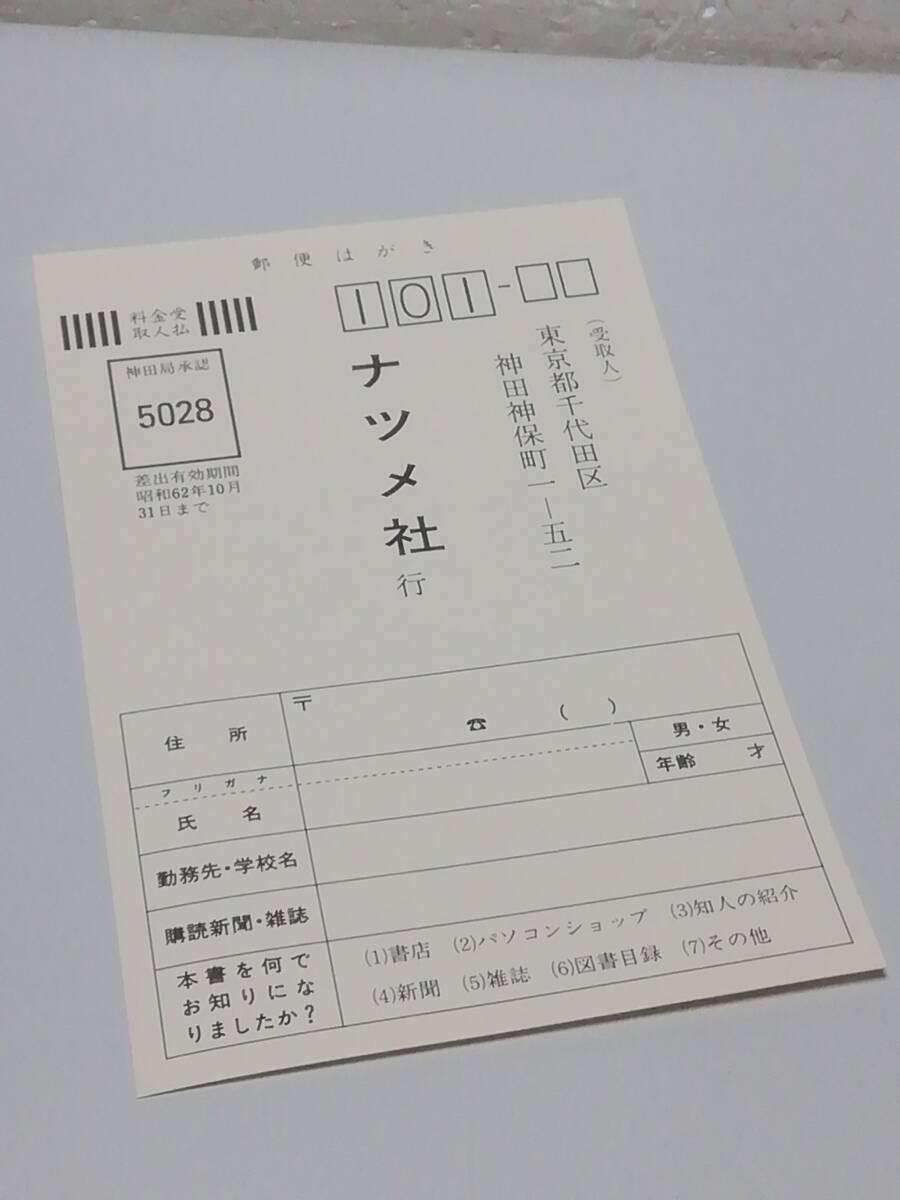 郵便はがき
料金受
取人払
神田局承認
5028
差出有効期間
昭和62年10月
31日まで
101-
(受取人)
東京都千代田区
神田神保町一―五二
ナツメ社行
住所
〒
☎ ( )
男・女
年齢 才
フリガナ
氏名
勤務先・学校名
購読新聞・雑誌
本書を何で
お知りにな
りましたか?
(1)書店 (2)パソコンショップ (3)知人の紹介
(4)新聞 (5)雑誌 (6)図書目録 (7)その他